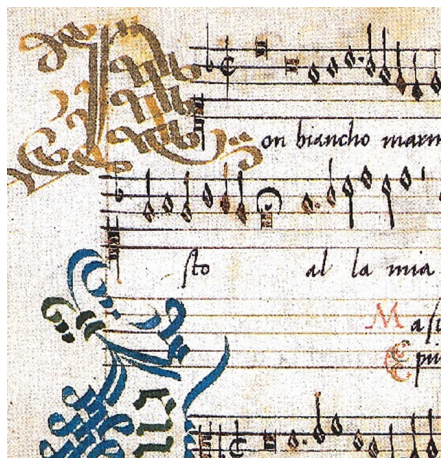 on biancho marm
sto al la mia
Ma
E pu